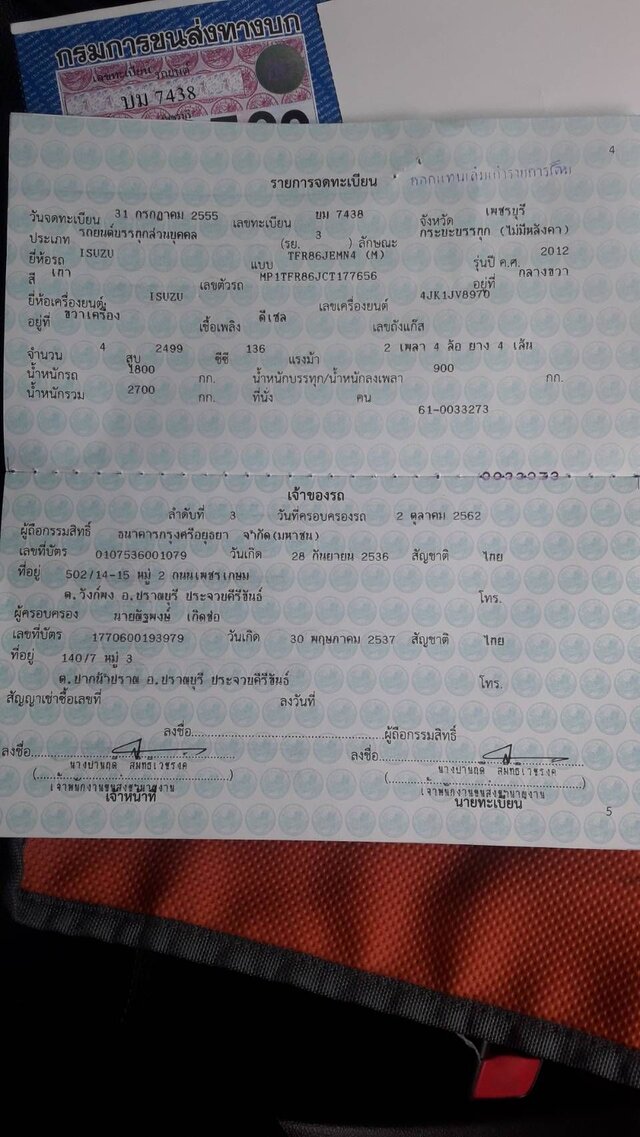 กรมการขนส่งทางบก
เลขทะเบียน รถยนต์
บม 7438
4
รายการจดทะเบียน
วันจดทะเบียน 31 กรกฎาคม 2555 เลขทะเบียน บม 7438 จังหวัด เพชรบุรี
ประเภท รถยนต์บรรทุกส่วนบุคคล (รย. 3 ) ลักษณะ กระบะบรรทุก (ไม่มีหลังคา)
ยี่ห้อรถ ISUZU แบบ TFR86JEMN4 (M) รุ่นปี ค.ศ. 2012
สี เทา เลขตัวรถ MP1TFR86JCT177656 อยู่ที่ กลางขวา
ยี่ห้อเครื่องยนต์ ISUZU เลขเครื่องยนต์ 4JK1JV8970
อยู่ที่ ขวาเครื่อง เชื้อเพลิง ดีเซล เลขถังแก๊ส
จำนวน 4 สูบ 2499 ซีซี 136 แรงม้า 2 เพลา 4 ล้อ ยาง 4 เส้น
น้ำหนักรถ 1800 กก. น้ำหนักบรรทุก/น้ำหนักลงเพลา 900 กก.
น้ำหนักรวม 2700 กก. ที่นั่ง คน
61-0033273
เจ้าของรถ
ลำดับที่ 3 วันที่ครอบครองรถ 2 ตุลาคม 2562
ผู้ถือกรรมสิทธิ์ ธนาคารกรุงศรีอยุธยา จำกัด(มหาชน)
เลขที่บัตร 0107536001079 วันเกิด 28 กันยายน 2536 สัญชาติ ไทย
ที่อยู่ 502/14-15 หมู่ 2 ถนนเพชรเกษม
ต.วังก์พง อ.ปราณบุรี ประจวบคีรีขันธ์ โทร.
ผู้ครอบครอง นายณัฐพงษ์ เกิดช่อ
เลขที่บัตร 1770600193979 วันเกิด 30 พฤษภาคม 2537 สัญชาติ ไทย
ที่อยู่ 140/7 หมู่ 3
ต.ปากน้ำปราณ อ.ปราณบุรี ประจวบคีรีขันธ์ โทร.
สัญญาเช่าซื้อเลขที่ ลงวันที่
ลงชื่อ ผู้ถือกรรมสิทธิ์
ลงชื่อ ลงชื่อ
เจ้าพนักงานขนส่งชำนาญงาน เจ้าพนักงานขนส่งชำนาญงาน
เจ้าหน้าที่ นายทะเบียน
5